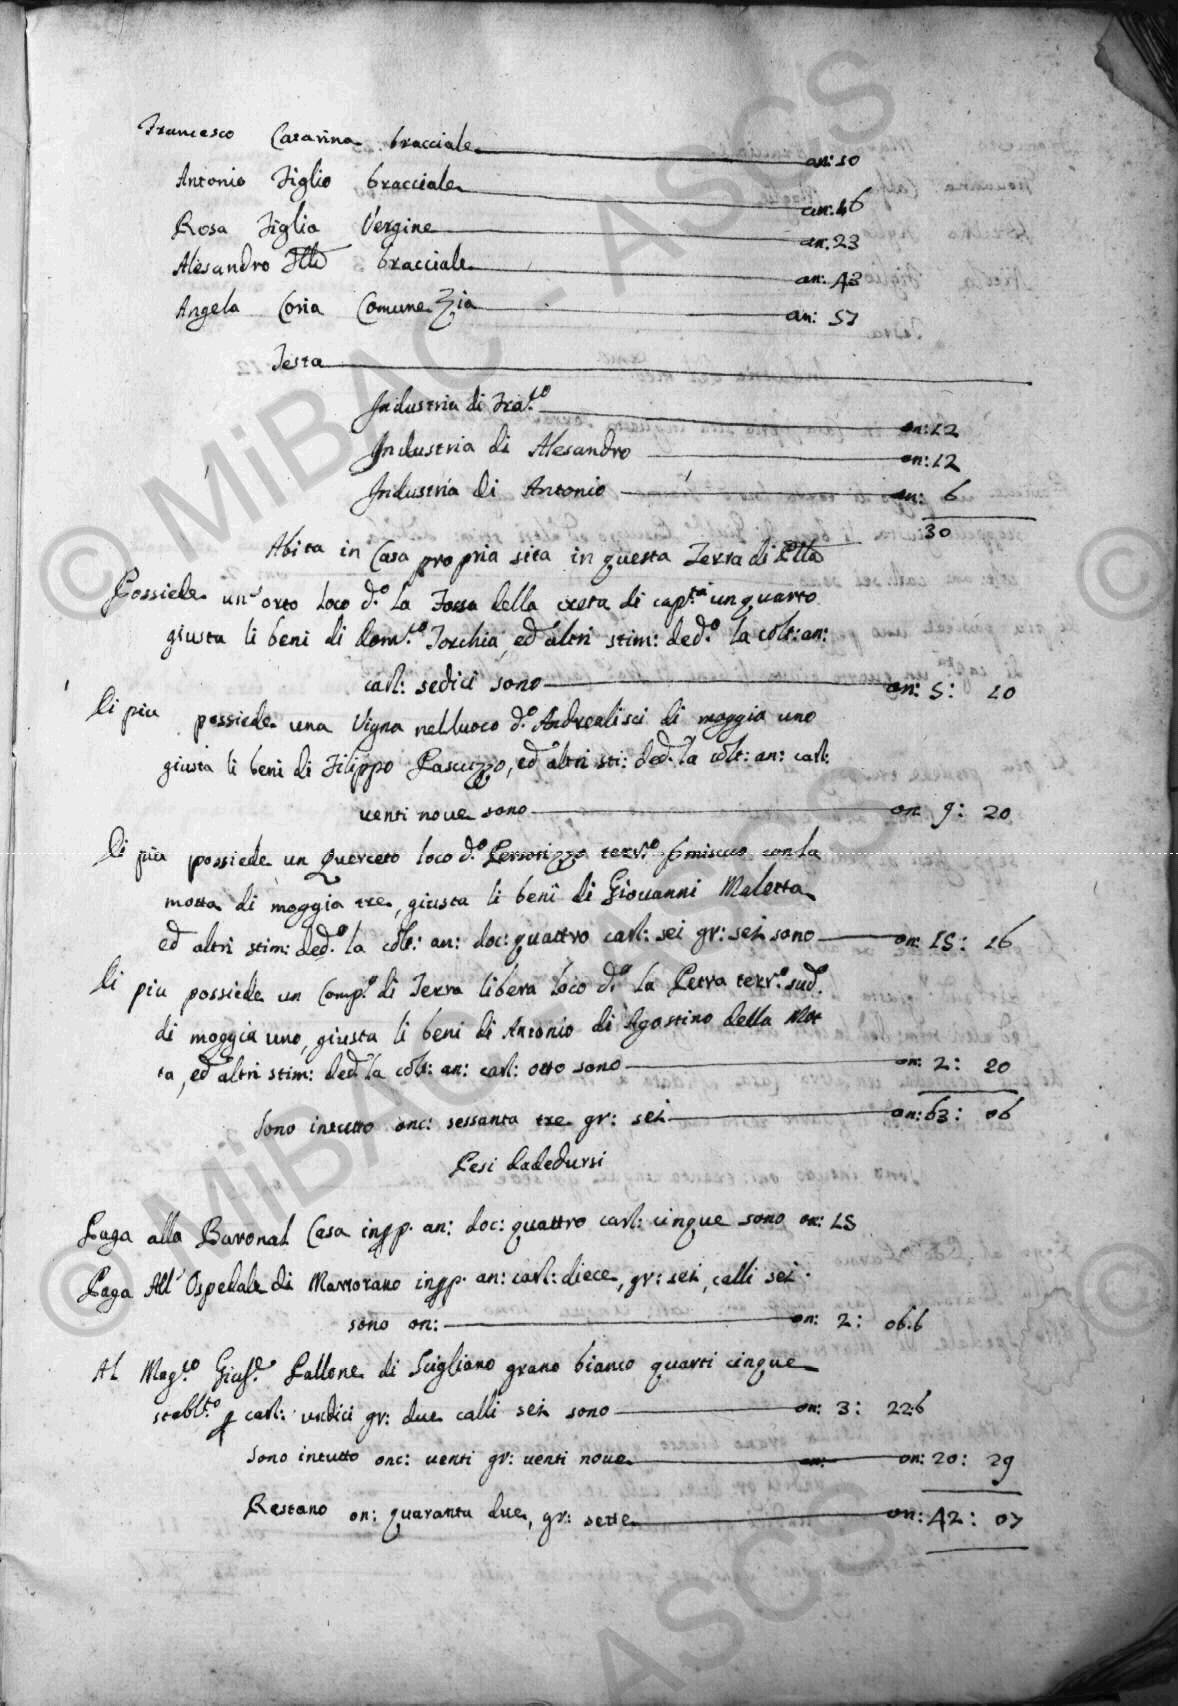 Francesco Catarina bracciale an: 50
Antonio Figlio bracciale an: 16
Rosa Figlia Vergine an: 23
Alesandro Fllo bracciale an: 43
Angela Coria Comune Zia an: 57
Testa
Industria di Fra:co on: 12
Industria di Alesandro on: 12
Industria di Antonio on: 6
30
Abita in Casa propria sita in questa Terra di
Possiede un'orto loco d:o La Fossa della creta di cap:tà un quarto
giusta li beni di Dom:co Torchia, ed altri stim: ded:o la colt: an:
carl: sedici sono on: 5: 10
Di più possiede una Vigna nel luoco d:o Andrealisci di moggia uno
giusta li beni di Filippo Pascuzzo, ed altri sti: ded: la colt: an: carl:
venti nove sono on: 9: 20
Di più possiede un Querceto loco d:o terr:o pmiscuo con la
motta di moggia tre, giusta li beni di Giovanni Maletta
ed altri stim: ded:o la colt: an: doc: quattro carl: sei gr: sei sono on: 15: 16
Di più possiede un Comp:o di Terra libera loco d:o la Petra terr:o sud:o
di moggia uno, giusta li beni di Antonio di Agostino della Mot
ta, ed altri stim: ded: la colt: an: carl: otto sono on: 2: 20
Sono in tutto onc: sessanta tre gr: sei on: 63: 06
Pesi dadedursi
Paga alla Baronal Casa in pp: an: doc: quattro carl: cinque sono on: 15
Paga All'Ospedale di Martorano in pp: an: carl: diece, gr: sei, calli sei
sono on: on: 2: 06:6
Al Mag:co Gius:e Pallone di Scigliano grano bianco quarti cinque
stabl:to p carl: undici gr: due calli sei sono on: 3: 22:6
Sono in tutto onc: venti gr: venti nove on: 20: 29
Restano on: quaranta due, gr: sette on: 42: 07
© MiBAC - ASCS
© MiBAC - ASCS
ASCS
©
©